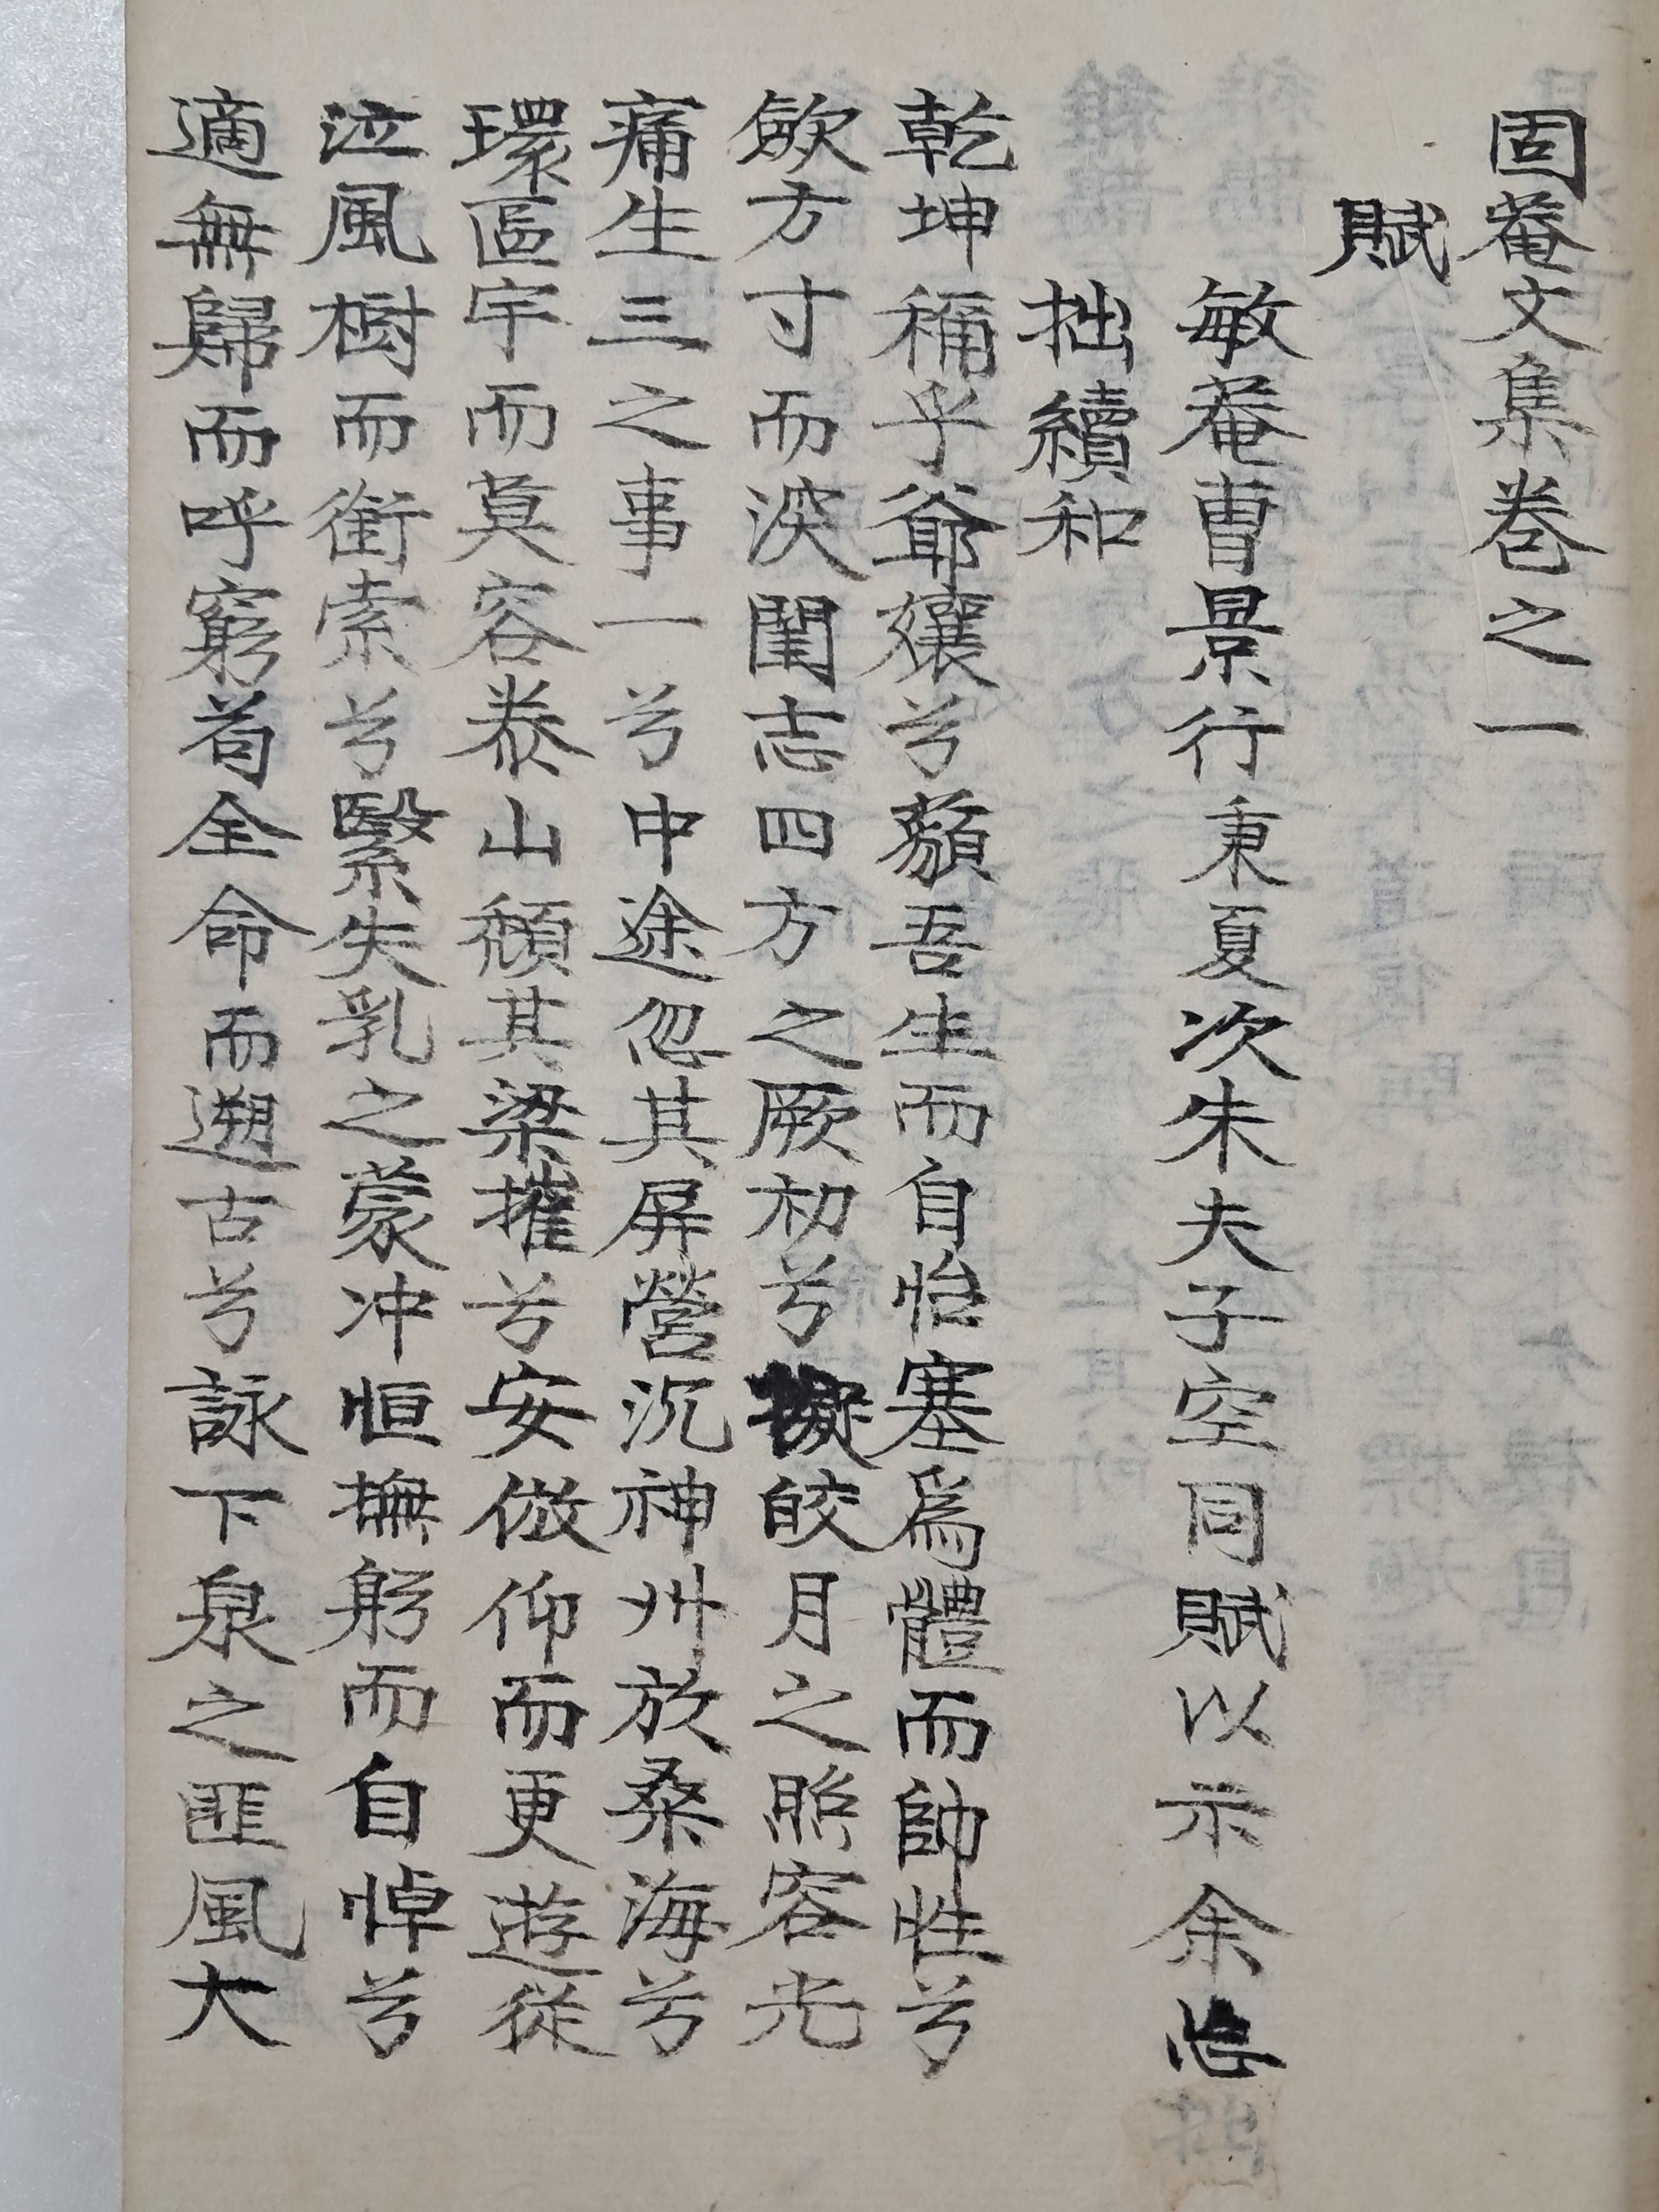 固菴文集卷之一
賦
敏菴曺景行秉夏次朱夫子空同賦以示余忘
拙續和
乾坤稱乎爺孃兮藐吾生而自怡塞爲體而帥性兮
斂方寸而淚閨志四方之厥初兮擬皎月之照容光
痛生三之事一兮中途忽其屏營沉神州放桑海兮
環區宇而莫容泰山頹其梁摧兮安倣仰而更遊從
泣風樹而銜索兮緊失乳之蒙冲恒撫躬而自悼兮
適無歸而呼窮苟全命而遡古兮詠下泉之匪風大